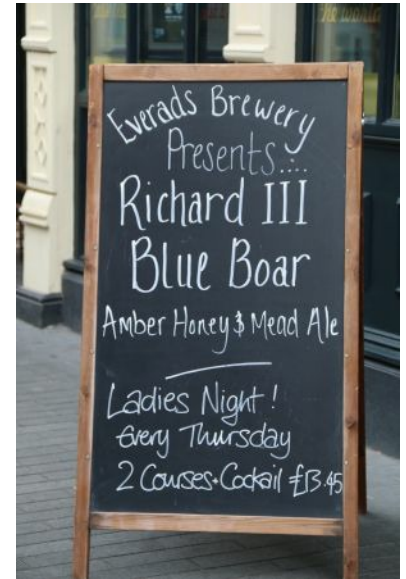 Everads Brewery
Presents....
Richard III
Blue Boar
Amber Honey & Mead Ale
Ladies Night!
Every Thursday
2 Courses+Cocktail £13.45